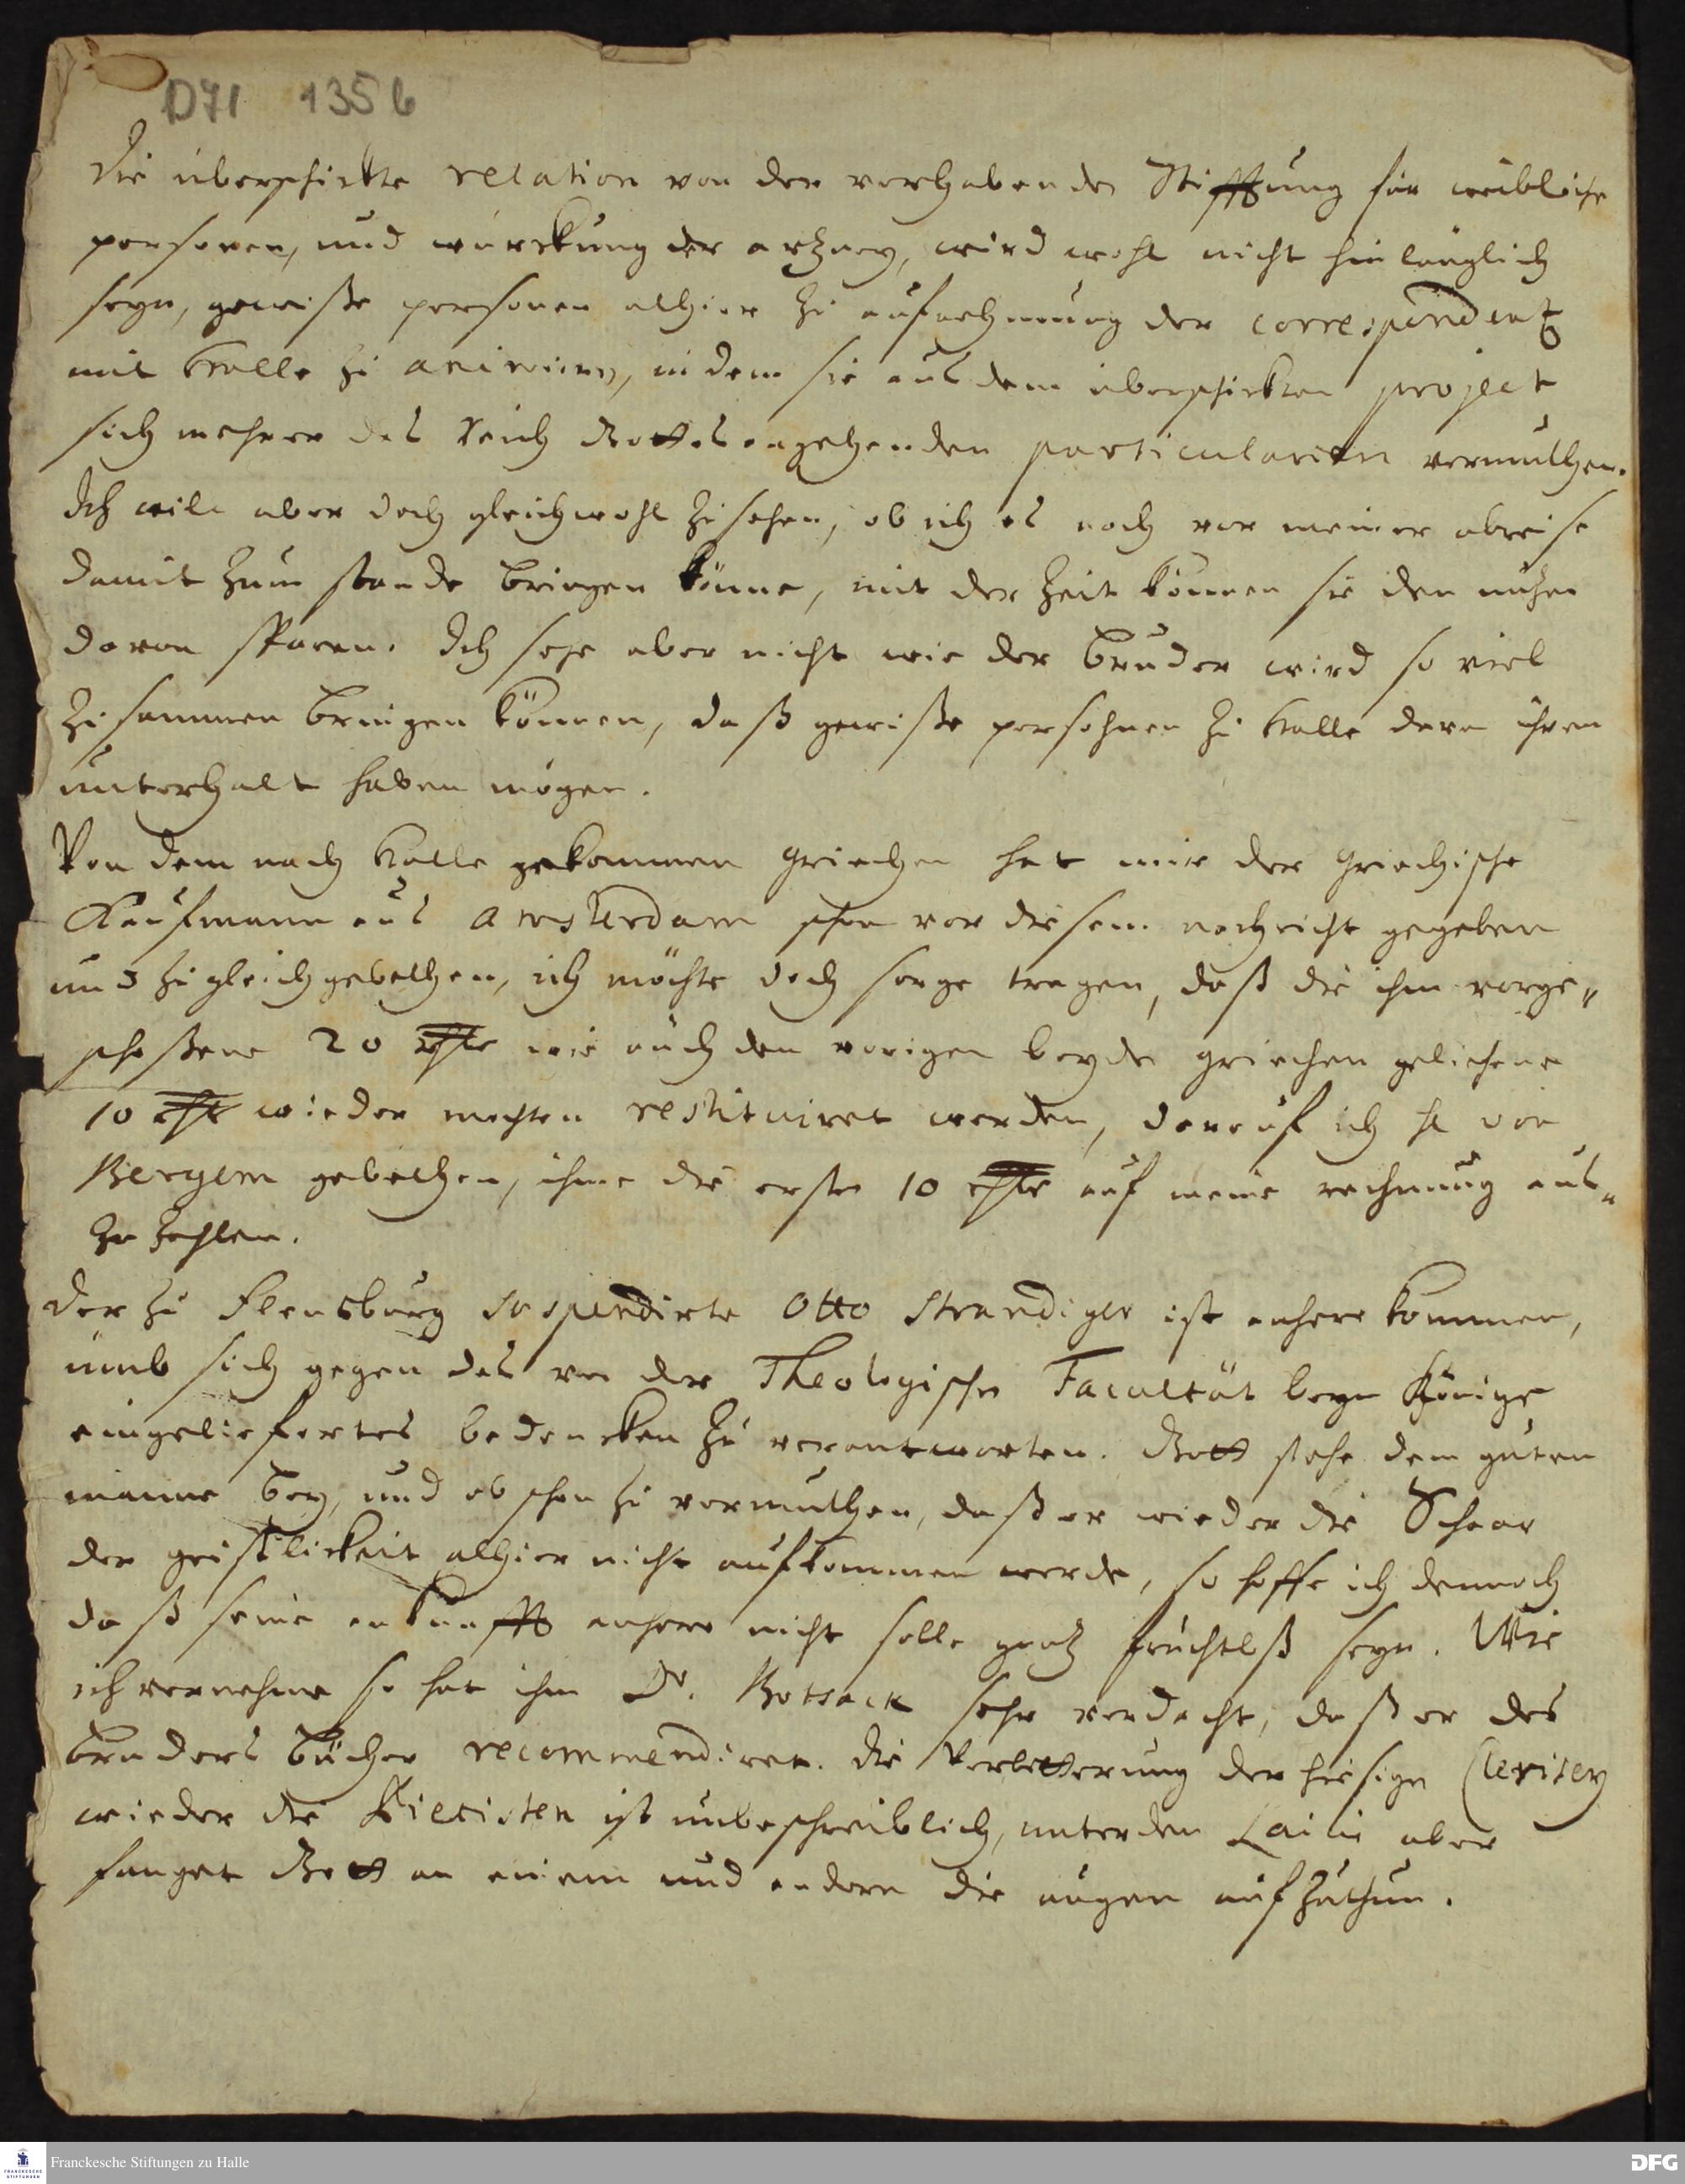 D71 1356
Die überschickte relation von der vorhabenden Stifftung für weibliche
personen, und würckung der artzney, wird wohl nicht hinlänglich
seyn, gewiße personen alhier zu aufnehmung der correspondentz
mit Halle zu animiren, indem sie aus dem überschickten project
sich mehrer das Reich Gottes angehenden particularien vermuthen.
Ich will aber doch gleichwohl zusehen, ob ich es noch vor meiner abreise
damit zum stande bringen könne, mit der Zeit können sie den nutzen
davon spüren. Ich sehe aber nicht wie der Bruder wird so viel
zusammen bringen können, daß gewiße persohnen zu Halle davon ihren
unterhalt haben mögen.
Von dem nach Halle gekommen Griechen hat mir der Griechische
Kaufmann aus Amsterdam schon vor diesem nachricht gegeben
und zugleich gebethen, ich möchte doch sorge tragen, daß die ihm vorge„
schoßene 20 rthlr wie auch den vorigen beyden griechen geliehene
10 rthlr wieder mochten restituiret werden, darauf ich H von
Bergem gebethen, ihme die erste 10 rthlr auf meine rechnung aus„
zu zahlen.
Der zu Flensburg suspendirte Otto Strandiger ist anhero kommen,
umb sich gegen das von der Theologischen Facultät beym Könige
eingeliefertes bedencken zu verantworten. Gott stehe dem guten
manne bey, und ob schon zu vermuthen, daß er wieder die Schaar
der geistlickeit alhier nicht aufkommen werde, so hoffe ich dennoch
daß seine ankunfft anhero nicht solle gantz fruchtloß seyn. Wie
ich vernehme so hat ihm Dr. Botsack sehr verdacht, daß er des
Bruders Bücher recommendiret. Die Verbitterung der hiesigen Clerisey
wieder die Pietisten ist unbeschreiblich, unter den Laicis aber
fanget Gott an einem und andern die augen aufzuthun.
Franckesche Stiftungen zu Halle
FRANCKESCHE STIFTUNGEN
DFG